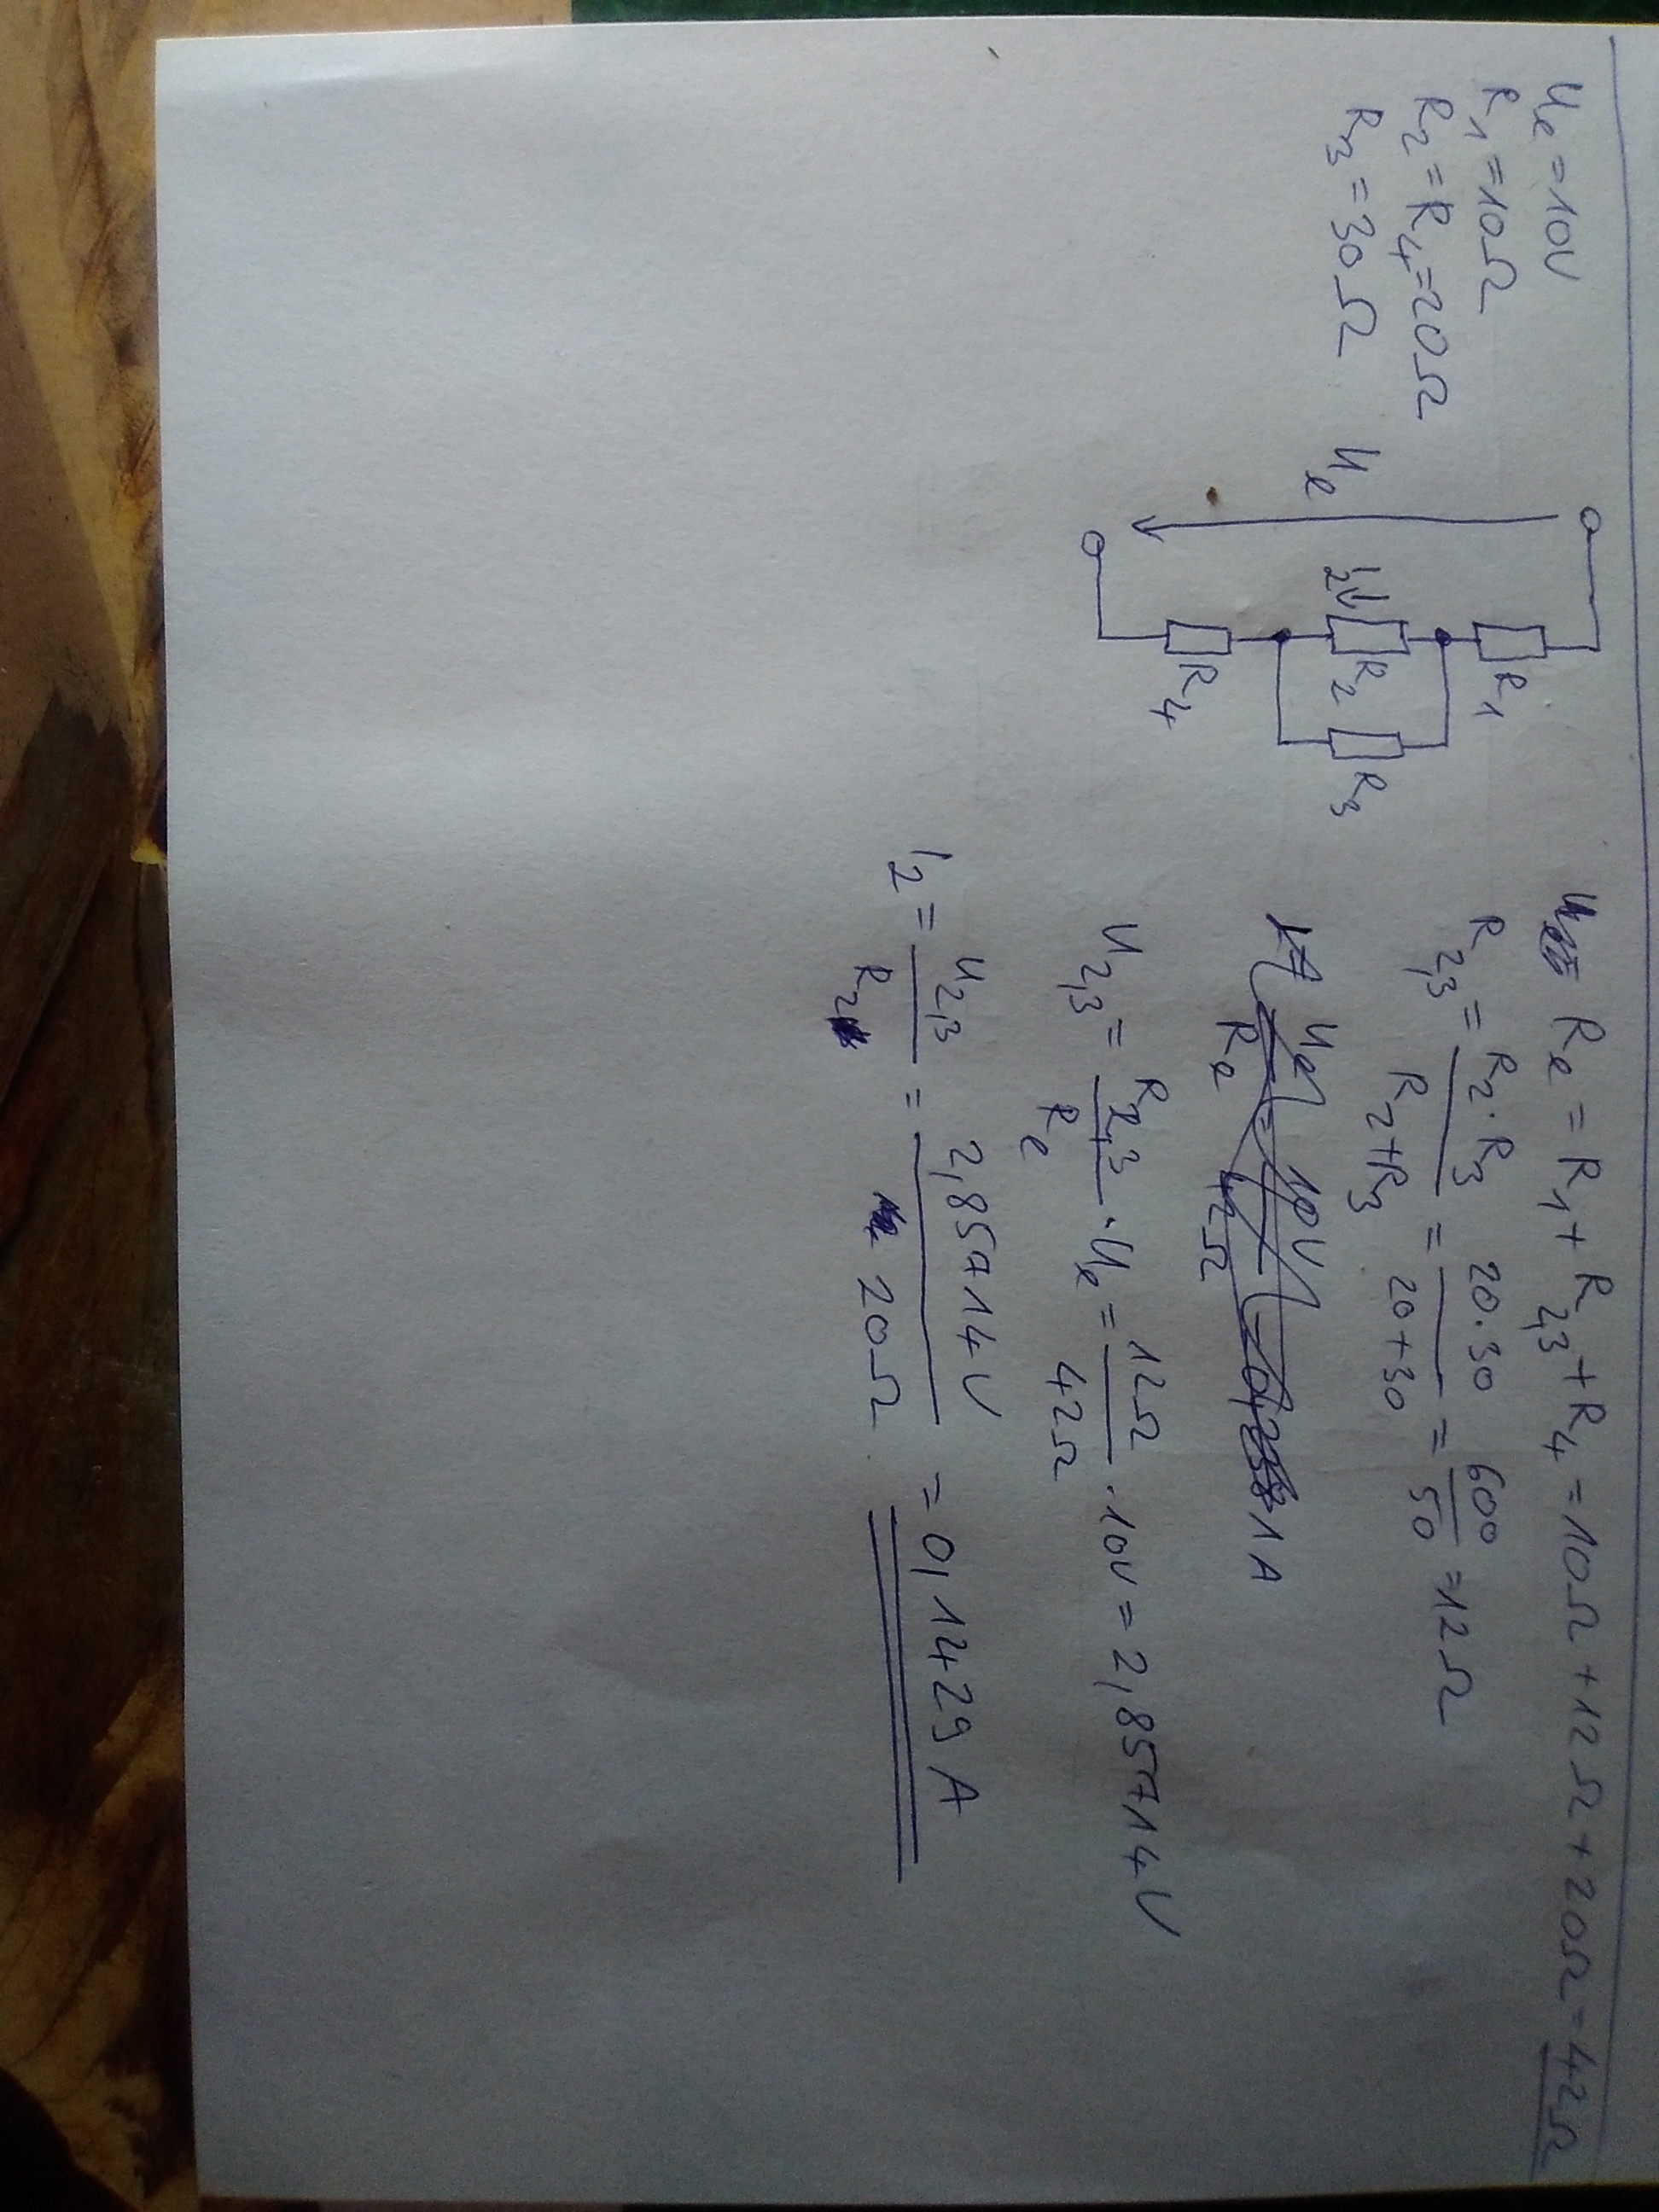 Ue = 10V
R1 = 10Ω
R2 = R4 = 20Ω
R3 = 30Ω
Ue
R1
R2
R3
R4
Re = R1 + R2,3 + R4 = 10Ω + 12Ω + 20Ω = 42Ω
R2,3 = R2 · R3 / R2 + R3 = 20 · 30 / 20 + 30 = 600 / 50 = 12Ω
Ue / Re = 10V / 42Ω
U2,3 = R2,3 / Re · Ue = 12Ω / 42Ω · 10V = 2,85714V
I2 = U2,3 / R2 = 2,85714V / 20Ω = 0,1429A